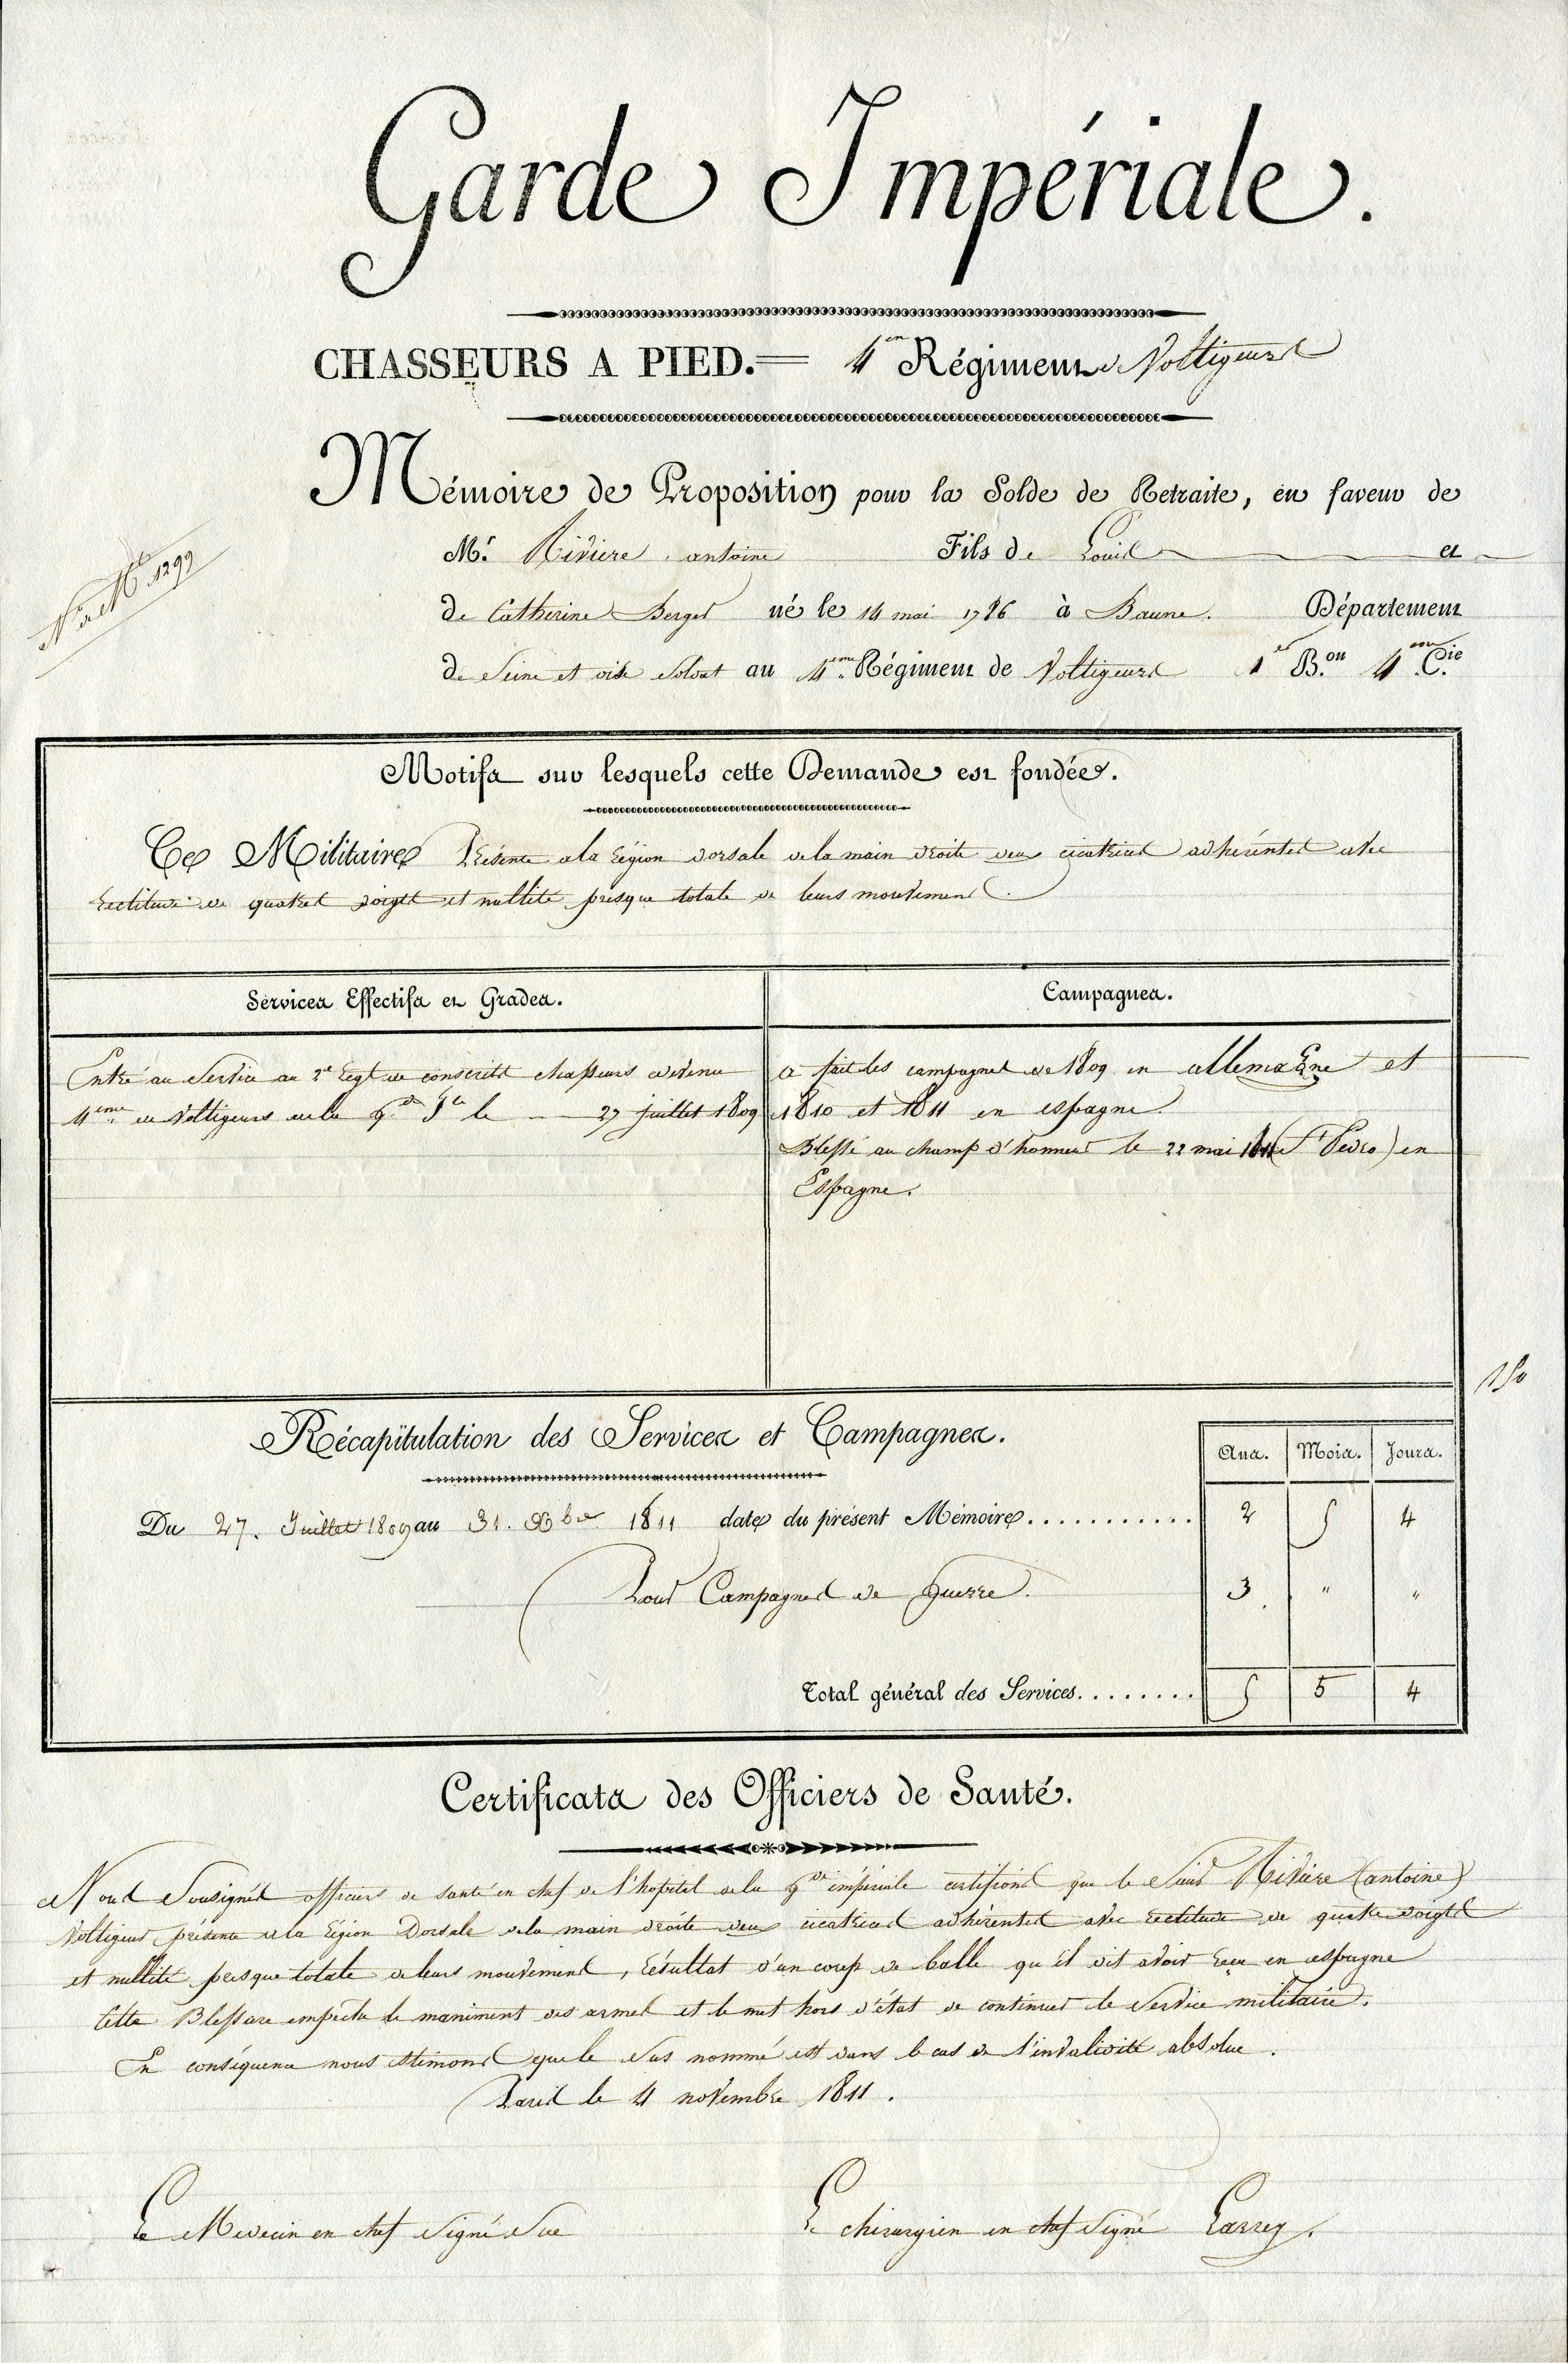 Garde Impériale.
CHASSEURS A PIED. = 4me Régiment de Voltigeurs
Mémoire de Proposition pour la Solde de Retraite, en faveur de
Mr. Riviere antoine Fils de Louis et
de Catherine Berger né le 14 mai 1786 à Baune. Département
de Seine et oise Soldat au 4eme Régiment de Voltigeurs 1er B.on 4em C.ie
Motifs sur lesquels cette Demande est fondée.
Ce Militaire Présente a la région dorsale de la main droite deux cicatrices adhérentes avec
rectitude de quatres doigts et nullité presque totale de leurs mouvemens.
Services Effectifs et Grades.
Campagnes.
Entré au Service au 2e Regt de conscrits chasseurs devenu
4eme de Voltigeurs de la gde Jle le 27 juillet 1809
a fait les campagnes de 1809 en allemagne et
1810 et 1811 en espagne
Blessé au champ d'honneur le 22 mai 1811 (St Pedro) en
Espagne.
150
Récapitulation des Services et Campagnes.
Ans. Mois. Jours.
Du 27. Juillet 1809 au 31. Xbre 1811 date du présent Mémoire........... 2 5 4
Pour Campagnes de Guerre. 3 " "
Total général des Services........ 5 5 4
Certificats des Officiers de Santé.
Nous Sousignés officiers de santé en chef de l'hopital de la gde impériale certifions que le Sieur Riviere (antoine)
Voltigeur présente a la région Dorsale de la main droite deux cicatrices adhérentes avec rectitude de quatre doigts
et nullité presque totale de leurs mouvemens, résultat d'un coup de balle qu'il dit avoir reçu en espagne
Cette Blessure empêche le maniment des armes et le met hors d'état de continuer le Service militaire.
En conséquence nous estimons que le Sus nommé est dans le cas de l'invalidité absolue.
Paris le 4 novembre 1811.
Le Medecin en chef Signé Sue
Le chirurgien en chef Signé Larrey.